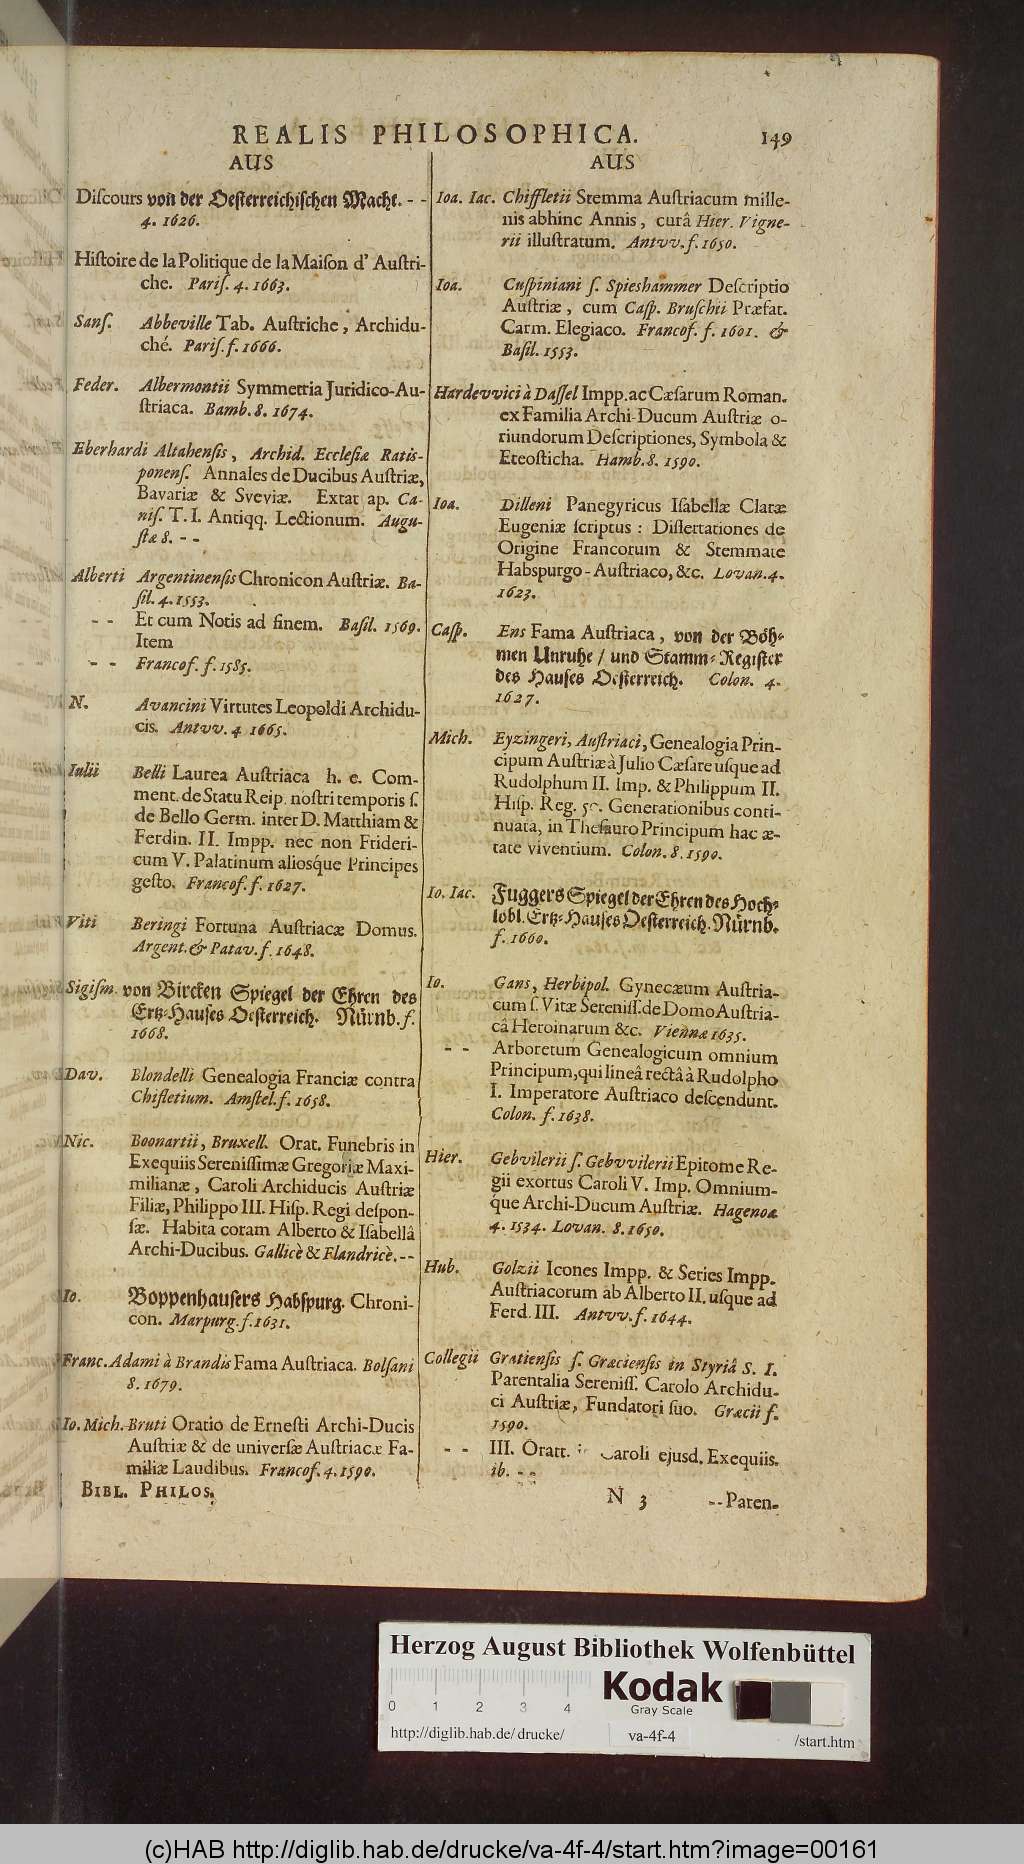 REALIS PHILOSOPHICA. 149
AUS
Diſcours von der Oeſterreichiſchen Macht. - -
4. 1626.
Hiſtoire de la Politique de la Maiſon d' Auſtri-
che. Pariſ. 4. 1663.
Sanſ. Abbeville Tab. Auſtriche, Archidu-
ché. Pariſ. f. 1666.
Feder. Albermontii Symmetria Juridico-Au-
ſtriaca. Bamb. 8. 1674.
Eberhardi Altahenſis, Archid. Eccleſiæ Ratis-
ponenſ. Annales de Ducibus Auſtriæ,
Bavariæ & Sveviæ. Extat ap. Ca-
niſ. T. I. Antiqq. Lectionum. Augu-
ſtæ 8. - -
Alberti Argentinenſis Chronicon Auſtriæ. Ba-
ſil. 4. 1553.
- - Et cum Notis ad finem. Baſil. 1569.
Item
- - Francof. f. 1585.
N. Avancini Virtutes Leopoldi Archidu-
cis. Antvv. 4 1665.
Iulii Belli Laurea Auſtriaca h. e. Com-
ment. de Statu Reip. noſtri temporis ſ.
de Bello Germ. inter D. Matthiam &
Ferdin. II. Impp. nec non Frideri-
cum V. Palatinum aliosq́ue Principes
geſto. Francof. f. 1627.
Viti Beringi Fortuna Auſtriacæ Domus.
Argent. & Patav. f. 1648.
Sigiſm. von Bircken Spiegel der Ehren des
Ertz-Hauſes Oeſterreich. Nürnb. f.
1668.
Dav. Blondelli Genealogia Franciæ contra
Chifletium. Amſtel. f. 1658.
Nic. Boonartii, Bruxell. Orat. Funebris in
Exequiis Sereniſſimæ Gregoriæ Maxi-
milianæ, Caroli Archiducis Auſtriæ
Filiæ, Philippo III. Hiſp. Regi deſpon-
ſæ. Habita coram Alberto & Iſabellâ
Archi-Ducibus. Gallicè & Flandricè. - -
Io. Boppenhauſers Habſpurg. Chroni-
con. Marpurg. f. 1631.
Franc. Adami à Brandis Fama Auſtriaca. Bolſani
8. 1679.
Io. Mich. Bruti Oratio de Erneſti Archi-Ducis
Auſtriæ & de univerſæ Auſtriacæ Fa-
miliæ Laudibus. Francof. 4. 1590.
BIBL. PHILOS.
AUS
Ioa. Iac. Chiffletii Stemma Auſtriacum mille-
nis abhinc Annis, curâ Hier. Vigne-
rii illuſtratum. Antvv. f. 1650.
Ioa. Cuſpiniani ſ. Spieshammer Deſcriptio
Auſtriæ, cum Caſp. Bruſchii Præfat.
Carm. Elegiaco. Francof. f. 1601. &
Baſil. 1553.
Hardevvici à Daſſel Impp. ac Cæſarum Roman.
ex Familia Archi-Ducum Auſtriæ o-
riundorum Deſcriptiones, Symbola &
Eteoſticha. Hamb. 8. 1590.
Ioa. Dilleni Panegyricus Iſabellæ Claræ
Eugeniæ ſcriptus : Diſſertationes de
Origine Francorum & Stemmate
Habspurgo-Auſtriaco, &c. Lovan. 4.
1623.
Caſp. Ens Fama Auſtriaca, von der Böh-
men Unruhe / und Stamm-Regiſter
des Hauſes Oeſterreich. Colon. 4.
1627.
Mich. Eyzingeri, Auſtriaci, Genealogia Prin-
cipum Auſtriæ à Julio Cæſare uſque ad
Rudolphum II. Imp. & Philippum II.
Hiſp. Reg. 50. Generationibus conti-
nuata, in Theſauro Principum hac æ-
tate viventium. Colon. 8. 1590.
Io. Iac. Fuggers Spiegel der Ehren des Hoch-
lobl. Ertz-Hauſes Oeſterreich. Nürnb.
f. 1660.
Io. Gans, Herbipol. Gynecæum Auſtria-
cum ſ. Vitæ Sereniſſ. de Domo Auſtria-
câ Heroinarum &c. Viennæ 1635.
- - Arboretum Genealogicum omnium
Principum, qui lineâ rectâ à Rudolpho
I. Imperatore Auſtriaco deſcendunt.
Colon. f. 1638.
Hier. Gebvilerii ſ. Gebvvilerii Epitome Re-
gii exortus Caroli V. Imp. Omnium-
que Archi-Ducum Auſtriæ. Hagenoæ
4. 1534. Lovan. 8. 1650.
Hub. Golzii Icones Impp. & Series Impp.
Auſtriacorum ab Alberto II. uſque ad
Ferd. III. Antvv. f. 1644.
Collegii Gratienſis ſ. Græcienſis in Styriâ S. I.
Parentalia Sereniſſ. Carolo Archidu-
ci Auſtriæ, Fundatori ſuo. Græcii f.
1590.
- - III. Oratt. Caroli ejusd. Exequiis.
ib. - -
N 3 - - Paren-
Herzog August Bibliothek Wolfenbüttel
0 1 2 3 4
Kodak
Gray Scale
http://diglib.hab.de/drucke/ va-4f-4 /start.htm
(c)HAB http://diglib.hab.de/drucke/va-4f-4/start.htm?image=00161